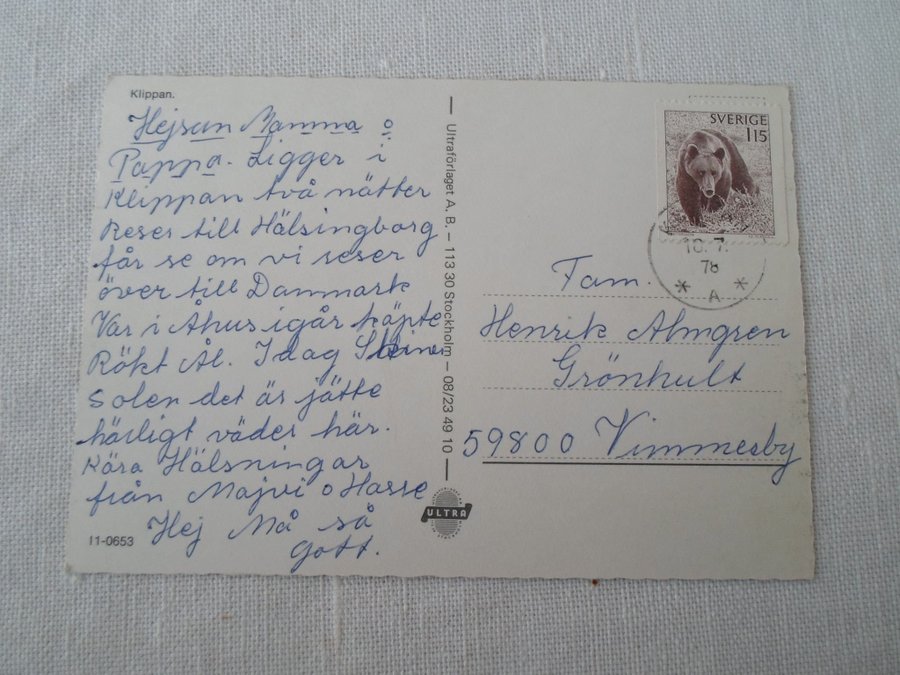 Klippan.
Hejsan Mamma o
Pappa. Ligger i
Klippan två nätter
Reser till Hälsingborg
får se om vi reser
över till Danmark
Var i Åhus igår köpte
Rökt Ål. Idag Skiner
Solen det är jätte
härligt väder här.
Kära Hälsningar
från Majvi o Hasse
Hej Må så
Gott.
11-0653
Ultraförlaget A. B. – 113 30 Stockholm – 08/23 49 10
ULTRA
SVERIGE
1.15
10. 7.
78
* A *
Fam.
Henrik Almgren
Grönhult
59800 Vimmesby